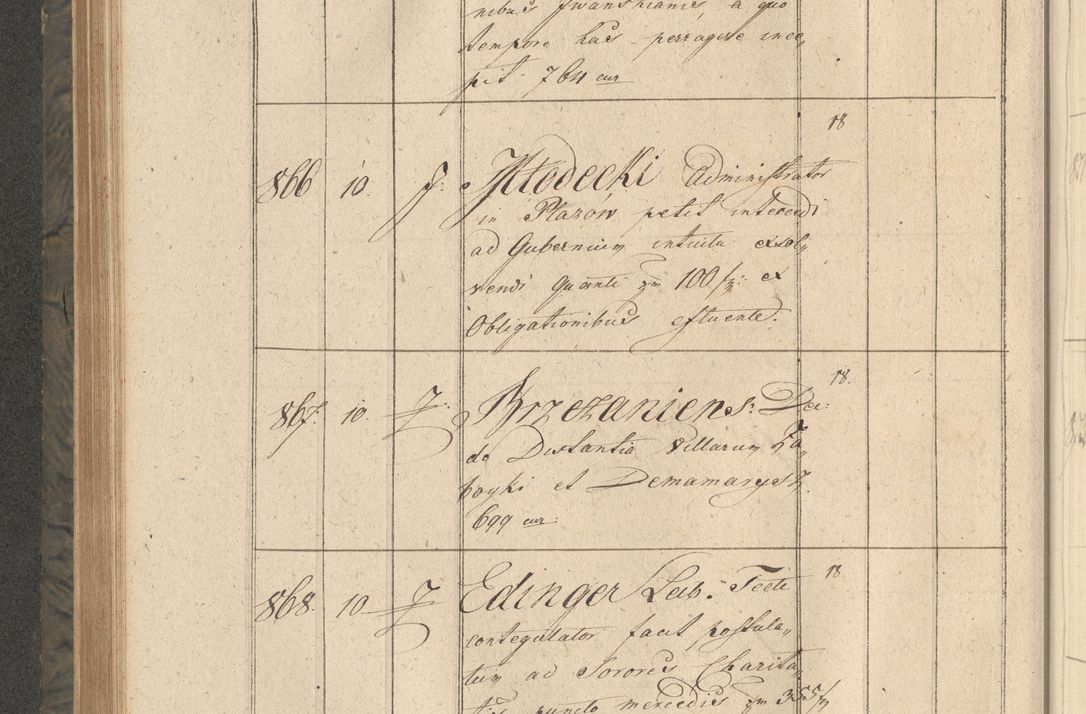 nibus Iwanskianis, a quo
tempore has perragere ince„
pit 764 cur
18
866 10. J: Kłodecki Administrator
in Płazów petit intercedi
ad Gubernium intuitu exsol„
vendi quanti pm 100 fr: ex
Obligationibus efluente.
18.
867. 10 Z: Brzezaniens: Dec:
de Distantia Villarum Za„
boyki et Demamarycz.
699 cur:
18
868. 10 Z Edinger Leib. Tecti
contegulator facit postula„
tum ad Sorores Charita„
tis puncto mercedis pm 355 fr